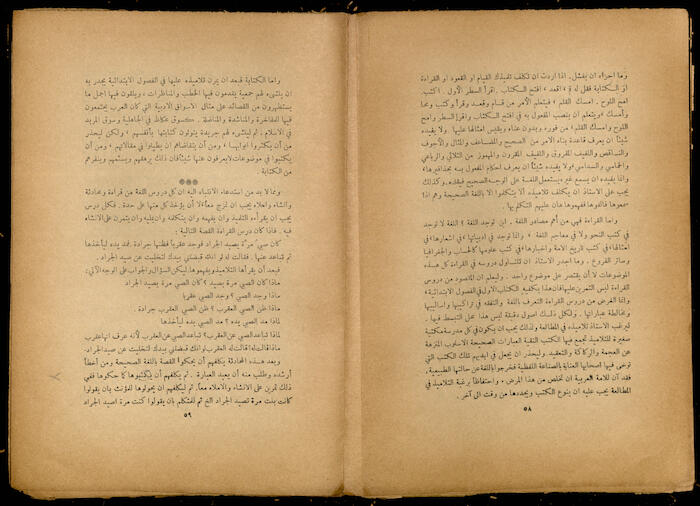 وما احراه ان يفشل. ماذا اردت ان تكلف تلميذك القيام او القعود او القراءة
او الكتابة فقل له قم، اقعد، افتح الكتاب. اقرأ السطر الأول. اكتب.
امح اللوح. امسك القلم، فيتعلم الأمر من قام وقعد وقرأ وكتب ومحا
وأمسك، ويتعلم ان ينصب المفعول به في افتح الكتاب واقرأ السطر وامح
اللوح وامسك القلم، من فوره وبدون عناء ويقيس امثالها عليها. ولا يفيده
شيئاً ان يعرف قاعدة بناء الامر من الصحيح والمضاعف والمثال والأجوف
والناقص واللفيف المفروق واللفيف المقرون والمهموز من الثلاثي والرباعي
والخماسي والسداسي، ولا يفيده شيئاً ان يعرف احكام المفعول به بحذافيرها،
وانما يفيده ان يسمع غيره يستعمل اللغة على الوجه الصحيح فيقلده. وكذلك
يجب على الاستاذ ان يكلف تلاميذه ألا يتكلموا الا باللغة الصحيحة وهم اذا
سمعوها فألفوها ففهموها هان عليهم التكلم بها.
واما القراءة فهي من أهم مصادر اللغة. اين توجد اللغة؟ اللغة لا توجد
في كتب النحو ولا في معاجم اللغة، وانما توجد في ادبياتها، في اشعارها، في
امثالها، في كتب تاريخ الامة واخبارها، في كتب علومها كالحساب والجغرافيا
وسائر الفروع. وما اجدر الاستاذ ان تتناول دروسه في القراءة كل هذه
الموضوعات لا أن يقتصر على موضوع واحد. وليعلم ان المقصود من دروس
القراءة ليس التمرين عليها فان هذا يكفيه الكتاب الاول في الفصول الابتدائية،
وانما الغرض من دروس القراءة التعرف باللغة والتفقه في تراكيبها واساليبها
ومخالطة عباراتها. ولكل ذلك اصول دقيقة ليس هذا محل التبسط فيها.
ليرغب الاستاذ تلاميذه في المطالعة ولذلك يجب ان يكون في كل مدرسة مكتبة
صغيرة للتلاميذ تجمع فيها الكتب النقية العبارات الصحيحة الاسلوب المنزهة
عن العجمة والركاكة والتعقيد. وليحذر ان يجعل في ايديهم تلك الكتب التي
توخى فيها اصحابها العناية بالصناعة اللفظية فخرجوا باللغة عن حالتها الطبيعية.
فقد آن للامة العربية ان تخلص من هذا المرض. واحتفاظاً برغبة التلاميذ في
المطالعة يجب عليه ان ينوع الكتب ويجددها من وقت الى آخر.
٥٨
واما الكتابة فبعد ان يمرن تلاميذه عليها في الفصول الابتدائية يجدر به
ان ينشىء لهم جمعية يقدمون فيها الخطب والمناظرات، ويلقون فيها اجمل ما
يستظهرون من القصائد على مثال الاسواق الادبية التي كان العرب يجتمعون
فيها للمفاخرة والمناشدة والمناضلة. كسوق عكاظ في الجاهلية وسوق المربد
في الاسلام. ثم لينشىء لهم جريدة يتولون كتابتها بأنفسهم، ولكن ليحذر
من أن يكثروا ابوابها. ومن أن يتقاضاهم ان يطيلوا في مقالاتهم، ومن أن
يكتبوا في موضوعات لا يعرفون عنها شيئاً فان ذلك يرهقهم ويسئمهم وينفرهم
من الكتابة.
ومما لا بد من استدعاء الانتباه اليه ان كل دروس اللغة من قراءة ومحادثة
وانشاء واملاء يجب ان تمزج معاً، لا أن يؤخذ كل منها على حدة. فكل درس
يجب ان يقرأه التلميذ وان يفهمه وان يتكلمه وان يمليه وان يتمرن على الانشاء
فيه. فاذا كان درس القراءة القصة التالية:
كان صبي مرة يصيد الجراد فوجد عقرباً فظنها جرادة. فمد يده ليأخذها
ثم تباعد عنها. فقالت له لو انك قبضتني بيدك لتخليت عن صيد الجراد.
فبعد أن يقرأها التلاميذ ويفهموها ليكن السؤال والجواب على الوجه الآتي:
ماذا كان الصبي مرة يصيد؟ كان الصبي مرة يصيد الجراد
ماذا وجد الصبي؟ وجد الصبي عقربا
ماذا ظن الصبي العقرب؟ ظن الصبي العقرب جرادة.
لماذا مد الصبي يده؟ مد الصبي يده ليأخذها
لماذا تباعد الصبي عن العقرب؟ تباعد الصبي عن العقرب لأنه عرف انها عقرب
ماذا قالت له العقرب؟ قالت له العقرب لو انك قبضتني بيدك لتخليت عن صيد الجراد.
وبعد هذه المحادثة يكلفهم أن يحكوا القصة باللغة الصحيحة ومن أخطأ
أرشده وطلب منه أن يعيد العبارة. ثم يكلفهم ان يكتبوها كما حكوها ففي
ذلك تمرين على الانشاء والاملاء معاً. ثم ليكلفهم ان يحولوها للمؤنث بان يقولوا
كانت بنت مرة تصيد الجراد الخ ثم للمتكلم بان يقولوا كنت مرة اصيد الجراد
٥٩